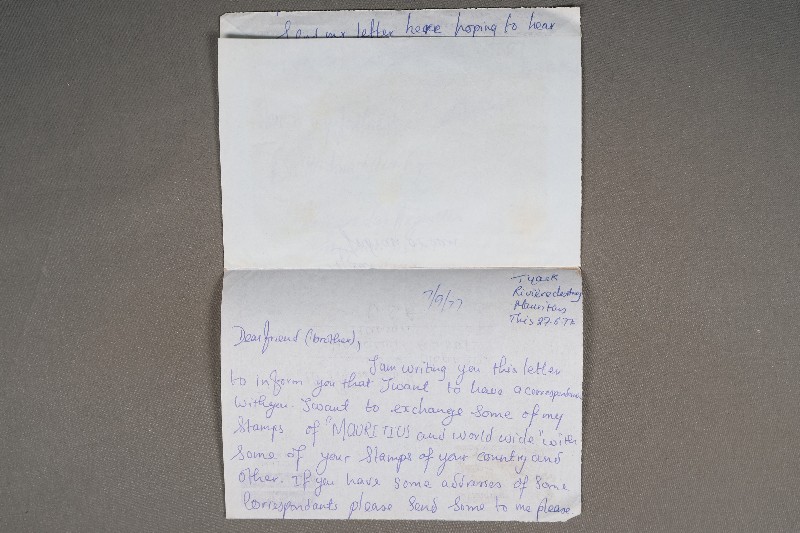 Send me letter here hoping to hear
7/9/77
Tyack
Rivière des Ang
Mauritius
This 27.6.77
Dear friend (brother),
I am writing you this letter
to inform you that I want to have a correspondance
with you. I want to exchange some of my
Stamps of "MAURITIUS and world wide" with
some of your Stamps of your country and
other. If you have some addresses of some
Correspondants please send some to me please